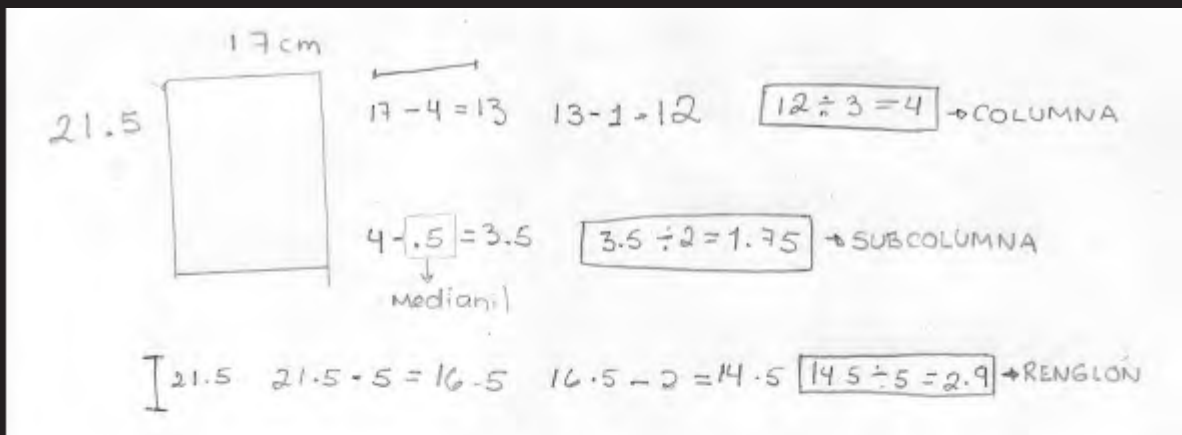 17 cm
21.5
17 - 4 = 13 13 - 1 = 12 12 ÷ 3 = 4 → COLUMNA
4 - .5 = 3.5 3.5 ÷ 2 = 1.75 → SUBCOLUMNA
Medianil
21.5 21.5 - 5 = 16.5 16.5 - 2 = 14.5 14.5 ÷ 5 = 2.9 → RENGLÓN